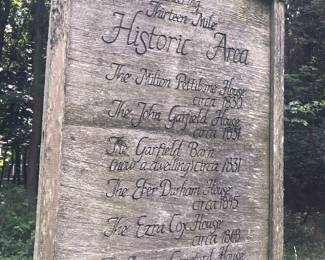 Thirteen Mile
Historic Area
The Milton Pettibone House
circa 1830
The John Garfield House
circa 1831
The Garfield Barn
(now a dwelling) circa 1851
The Eber Durham House
circa 1845
The Ezra Cox House
circa 1868